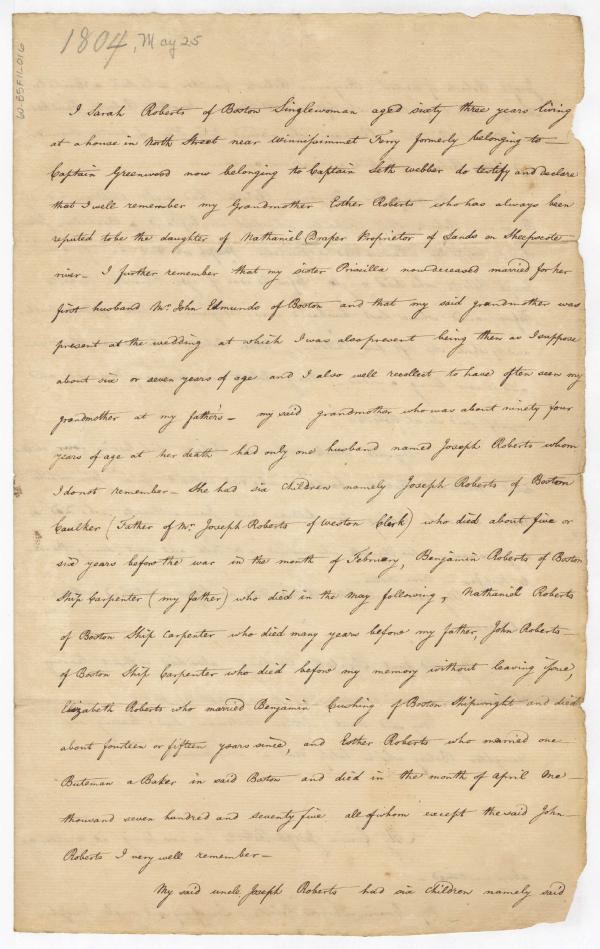 1804, May 25
W-BSFIL016
I Sarah Roberts of Boston Singlewoman aged sixty three years living
at a house in North Street near Winnisimmet Ferry formerly belonging to
Captain Greenwood now belonging to Captain Seth Webber do testify and declare
that I well remember my Grandmother Esther Roberts who has always been
reputed to be the daughter of Nathaniel Draper Proprietor of Lands on Sheepscote
river - I further remember that my sister Priscilla now deceased married for her
first husband Mr John Edmunds of Boston and that my said grandmother was
present at the wedding at which I was also present being then as I suppose
about six or seven years of age and I also well recollect to have often seen my
grandmother at my father's - my said grandmother who was about ninety four
years of age at her death had only one husband named Joseph Roberts whom
I do not remember - She had six children namely Joseph Roberts of Boston
Caulker (Father of Mr Joseph Roberts of Weston Clerk) who died about five or
six years before the war in the month of February, Benjamin Roberts of Boston
Ship Carpenter (my father) who died in the May following, Nathaniel Roberts
of Boston Ship Carpenter who died many years before my father, John Roberts
of Boston Ship Carpenter who died before my memory without leaving issue,
Elizabeth Roberts who married Benjamin Cushing of Boston Shipwright and died
about fourteen or fifteen years since, and Esther Roberts who married one
Buteman a Baker in said Boston and died in the month of April one
thousand seven hundred and seventy five all of whom except the said John
Roberts I very well remember -
My said uncle Joseph Roberts had six children namely said